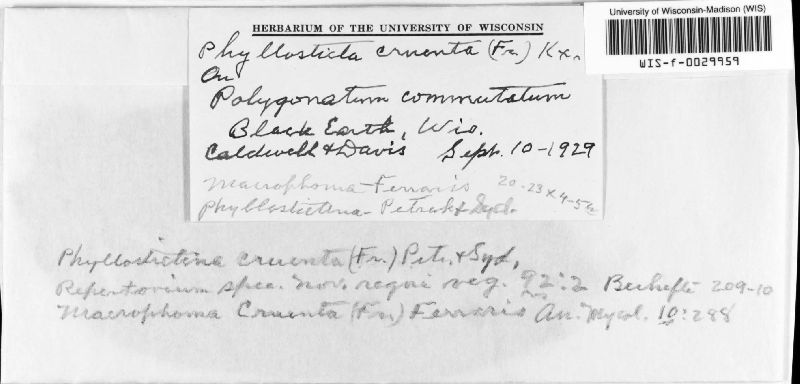 University of Wisconsin-Madison (WIS)
WIS-f-0029959
HERBARIUM OF THE UNIVERSITY OF WISCONSIN
Phyllosticta cruenta (Fr.) Kx.
On
Polygonatum commutatum
Black Earth, Wis.
Caldwell & Davis Sept. 10-1929
Macrophoma-Ferraris 20-23 x 4-5
Phyllostictina-Petrak & Syd.
Phyllostictina cruenta (Fr.) Petr. & Syd,
Repertorium spec. nov. regni veg. 92:2 Beihefte 209-10
Macrophoma Cruenta (Fr.) Ferraris An. Mycol. 10:288